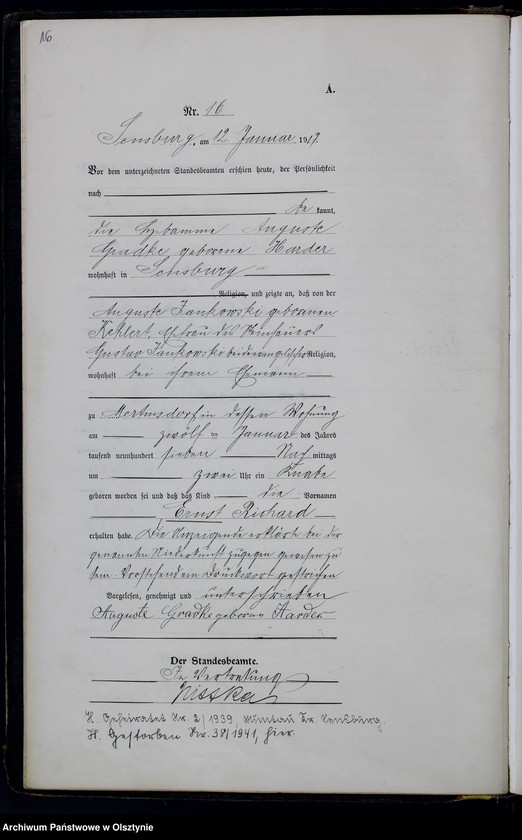 16
A.
Nr. 16
Sensburg, am 12 Januar 1917.
Vor dem unterzeichneten Standesbeamten erschien heute, der Persönlichkeit
nach
be kannt,
die Hebamme Auguste
Gradke geborene Harder
wohnhaft in Sensburg
Religion, und zeigte an, daß von der
Auguste Jankowski geborenen
Kehlert, Ehefrau des
Gustav Jankowski beide evangelischer Religion,
wohnhaft bei ihrem Ehemann
zu Mertinsdorf in dessen Wohnung
am zwölf ten Januar des Jahres
tausend neunhundert sieben Nach mittags
um zwei Uhr ein Knabe
geboren worden sei und daß das Kind die Vornamen
Ernst Richard
erhalten habe. Die Anzeigende erklärt bei der
genannten Niederkunft zugegen gewesen zu
sein. Vorstehend ein Druckwort gestrichen
Vorgelesen, genehmigt und unterschrieben
Auguste Gradke geborne Harder
Der Standesbeamte.
In Vertretung
H. Geheiratet Nr. 2/1939
H. Gestorben Nr. 38/1941, hier.
Archiwum Państwowe w Olsztynie